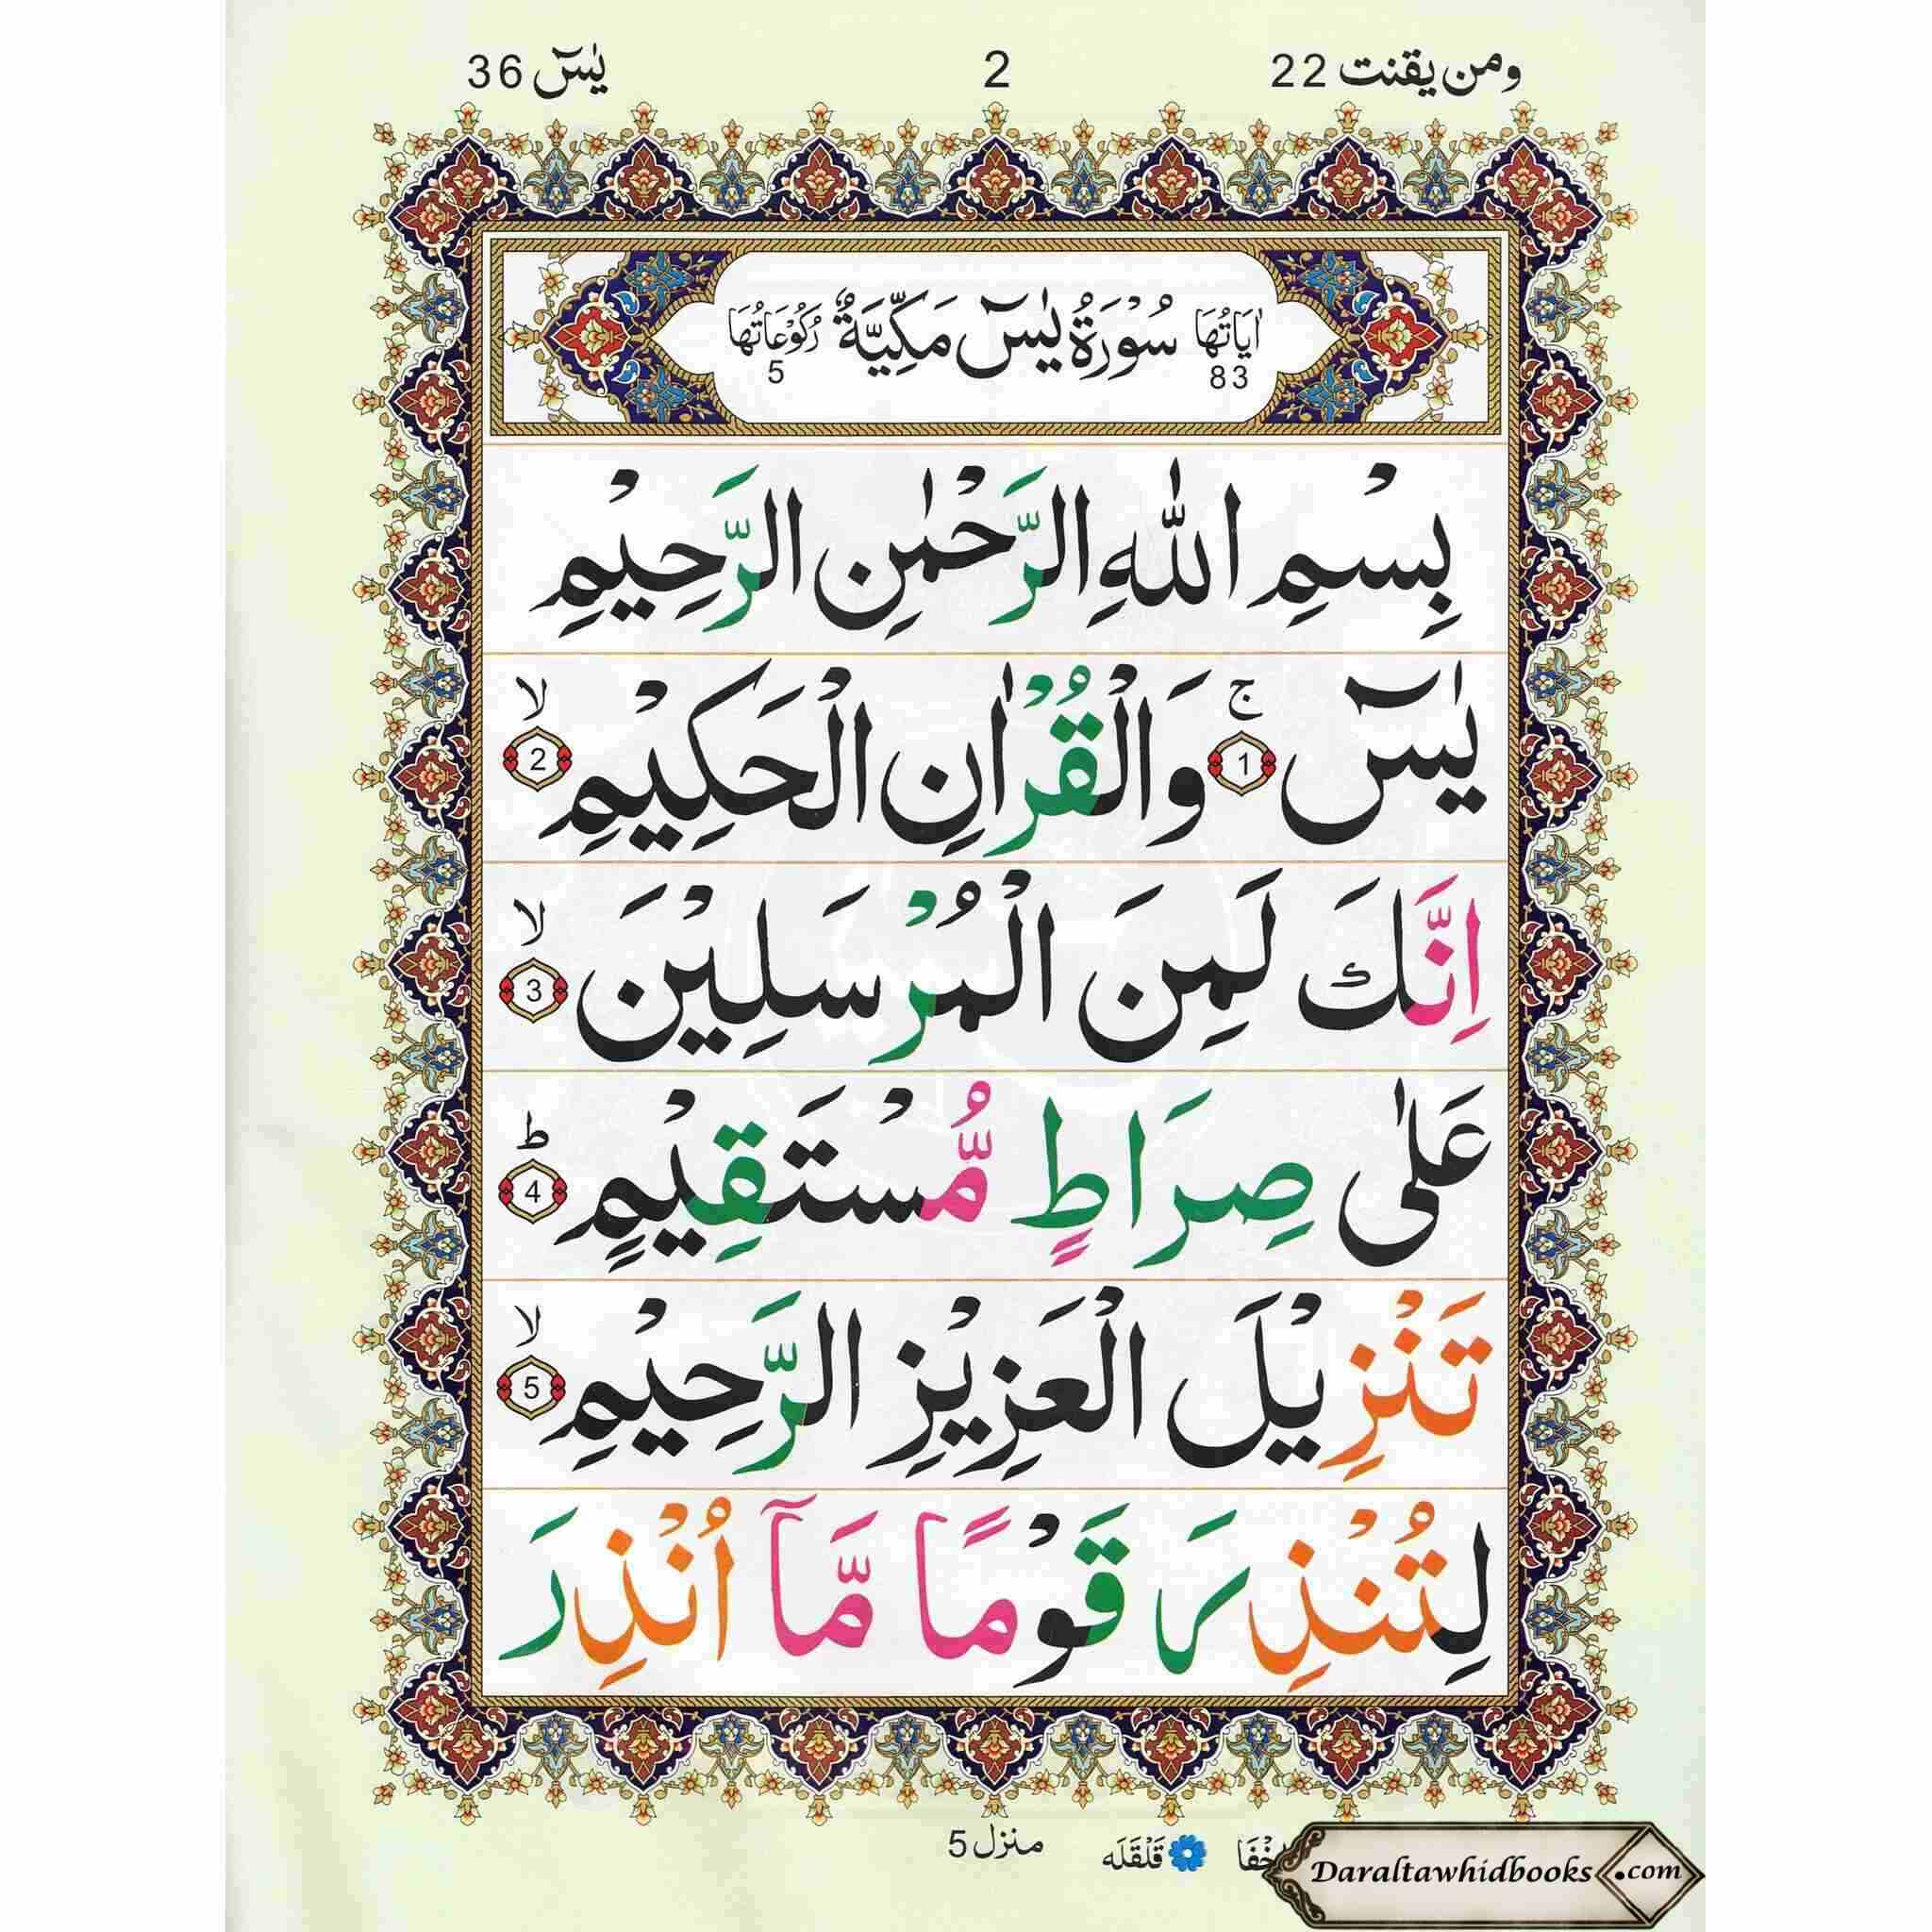 ومن يقنت 22
2
يٰسٓ 36
اٰيَاتُهَا 83 سُوْرَةُ يٰسٓ مَكِّيَّةٌ رُكُوْعَاتُهَا 5
بِسْمِ اللّٰهِ الرَّحْمٰنِ الرَّحِيْمِ
يٰسٓ ۚ 1 وَالْقُرْاٰنِ الْحَكِيْمِ ۙ 2
اِنَّكَ لَمِنَ الْمُرْسَلِيْنَ ۙ 3
عَلٰى صِرَاطٍ مُّسْتَقِيْمٍ ؕ 4
تَنْزِيْلَ الْعَزِيْزِ الرَّحِيْمِ ۙ 5
لِتُنْذِرَ قَوْمًا مَّاۤ اُنْذِرَ
قَلْقَلَه منزل 5
Daraltawhidbooks.com